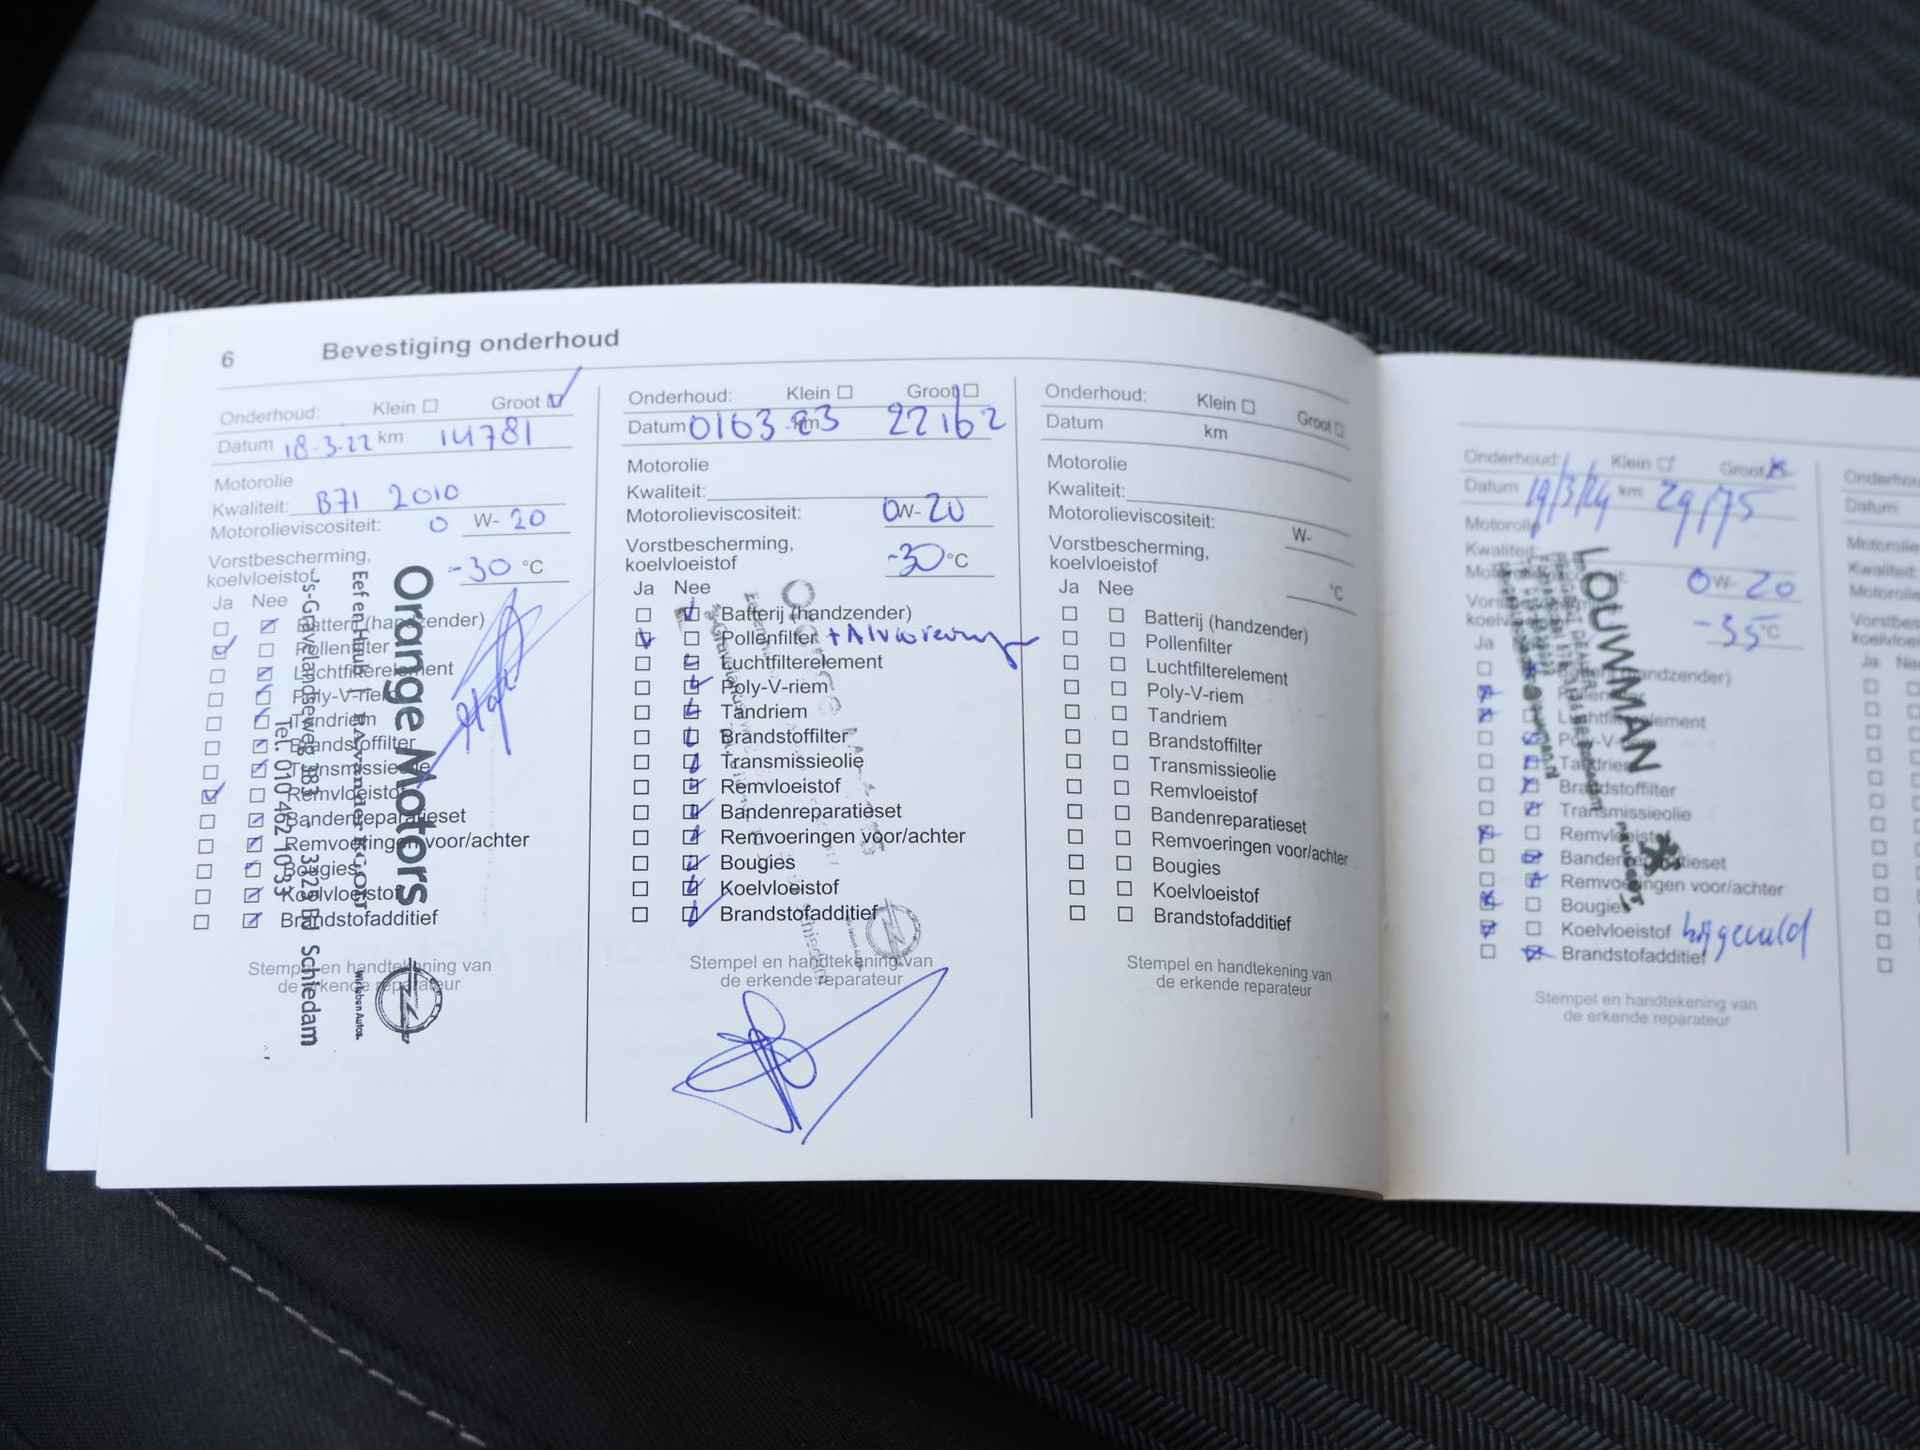 6 Bevestiging onderhoud
Onderhoud: Klein Groot
Datum 18-3-22 km 14781
Motorolie
Kwaliteit: B71 2010
Motorolieviscositeit: 0 W- 20
Vorstbescherming,
koelvloeistof -30 °C
Ja Nee
Batterij (handzender)
Pollenfilter
Luchtfilterelement
Poly-V-riem
Tandriem
Brandstoffilter
Transmissieolie
Remvloeistof
Bandenreparatieset
Remvoeringen voor/achter
Bougies
Koelvloeistof
Brandstofadditief
Stempel en handtekening van
de erkende reparateur
Orange Motors
Wir leben Autos.
's-Gravelandseweg 383 - 3125 BJ Schiedam
Tel. 010 462 1033
Onderhoud: Klein Groot
Datum 0163 23 km 22162
Motorolie
Kwaliteit:
Motorolieviscositeit: 0W- 20
Vorstbescherming,
koelvloeistof -30 °C
Ja Nee
Batterij (handzender)
Pollenfilter
Luchtfilterelement
Poly-V-riem
Tandriem
Brandstoffilter
Transmissieolie
Remvloeistof
Bandenreparatieset
Remvoeringen voor/achter
Bougies
Koelvloeistof
Brandstofadditief
Stempel en handtekening van
de erkende reparateur
Onderhoud: Klein Groot
Datum km
Motorolie
Kwaliteit:
Motorolieviscositeit: W-
Vorstbescherming,
koelvloeistof °C
Ja Nee
Batterij (handzender)
Pollenfilter
Luchtfilterelement
Poly-V-riem
Tandriem
Brandstoffilter
Transmissieolie
Remvloeistof
Bandenreparatieset
Remvoeringen voor/achter
Bougies
Koelvloeistof
Brandstofadditief
Stempel en handtekening van
de erkende reparateur
Onderhoud: Klein Groot
Datum 19/3/24 km 29175
Motorolie
Kwaliteit:
0W- 20
-35 °C
Ja
(handzender)
Pollenfilter
Luchtfilterelement
Poly-V-riem
Tandriem
Brandstoffilter
Transmissieolie
Remvloeistof
Bandenreparatieset
Remvoeringen voor/achter
Bougies
Koelvloeistof bijgevuld
Brandstofadditief
Stempel en handtekening van
de erkende reparateur
LOUWMAN
PEUGEOT
Onderhoud
Datum
Motorolie
Kwaliteit:
Ja